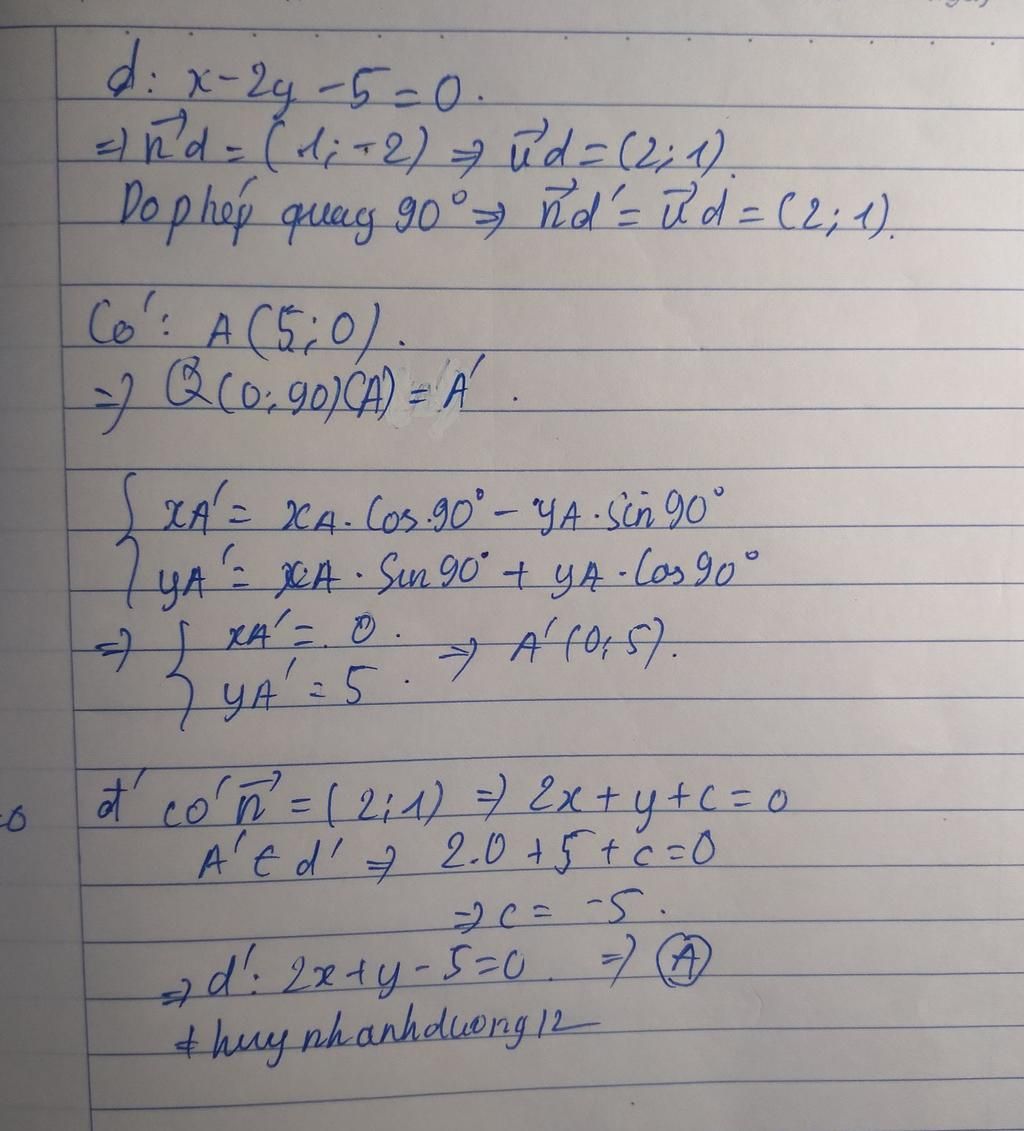 d: x - 2y - 5 = 0.
=> n⃗d = (1; -2) => u⃗d = (2; 1).
Do phép quay 90° => n⃗d' = u⃗d = (2; 1).
Có: A (5; 0).
=> Q(0; 90)(A) = A'.
{ xA' = xA. Cos.90° - yA. Sin 90°
yA' = xA. Sin90° + yA. Cos 90°
=> { xA' = 0. => A' (0; 5).
yA' = 5.
d' có n⃗ = (2; 1) => 2x + y + c = 0
A' ∈ d' => 2.0 + 5 + c = 0
=> c = -5.
=> d': 2x + y - 5 = 0. => Ⓐ
thuynhanhduong12